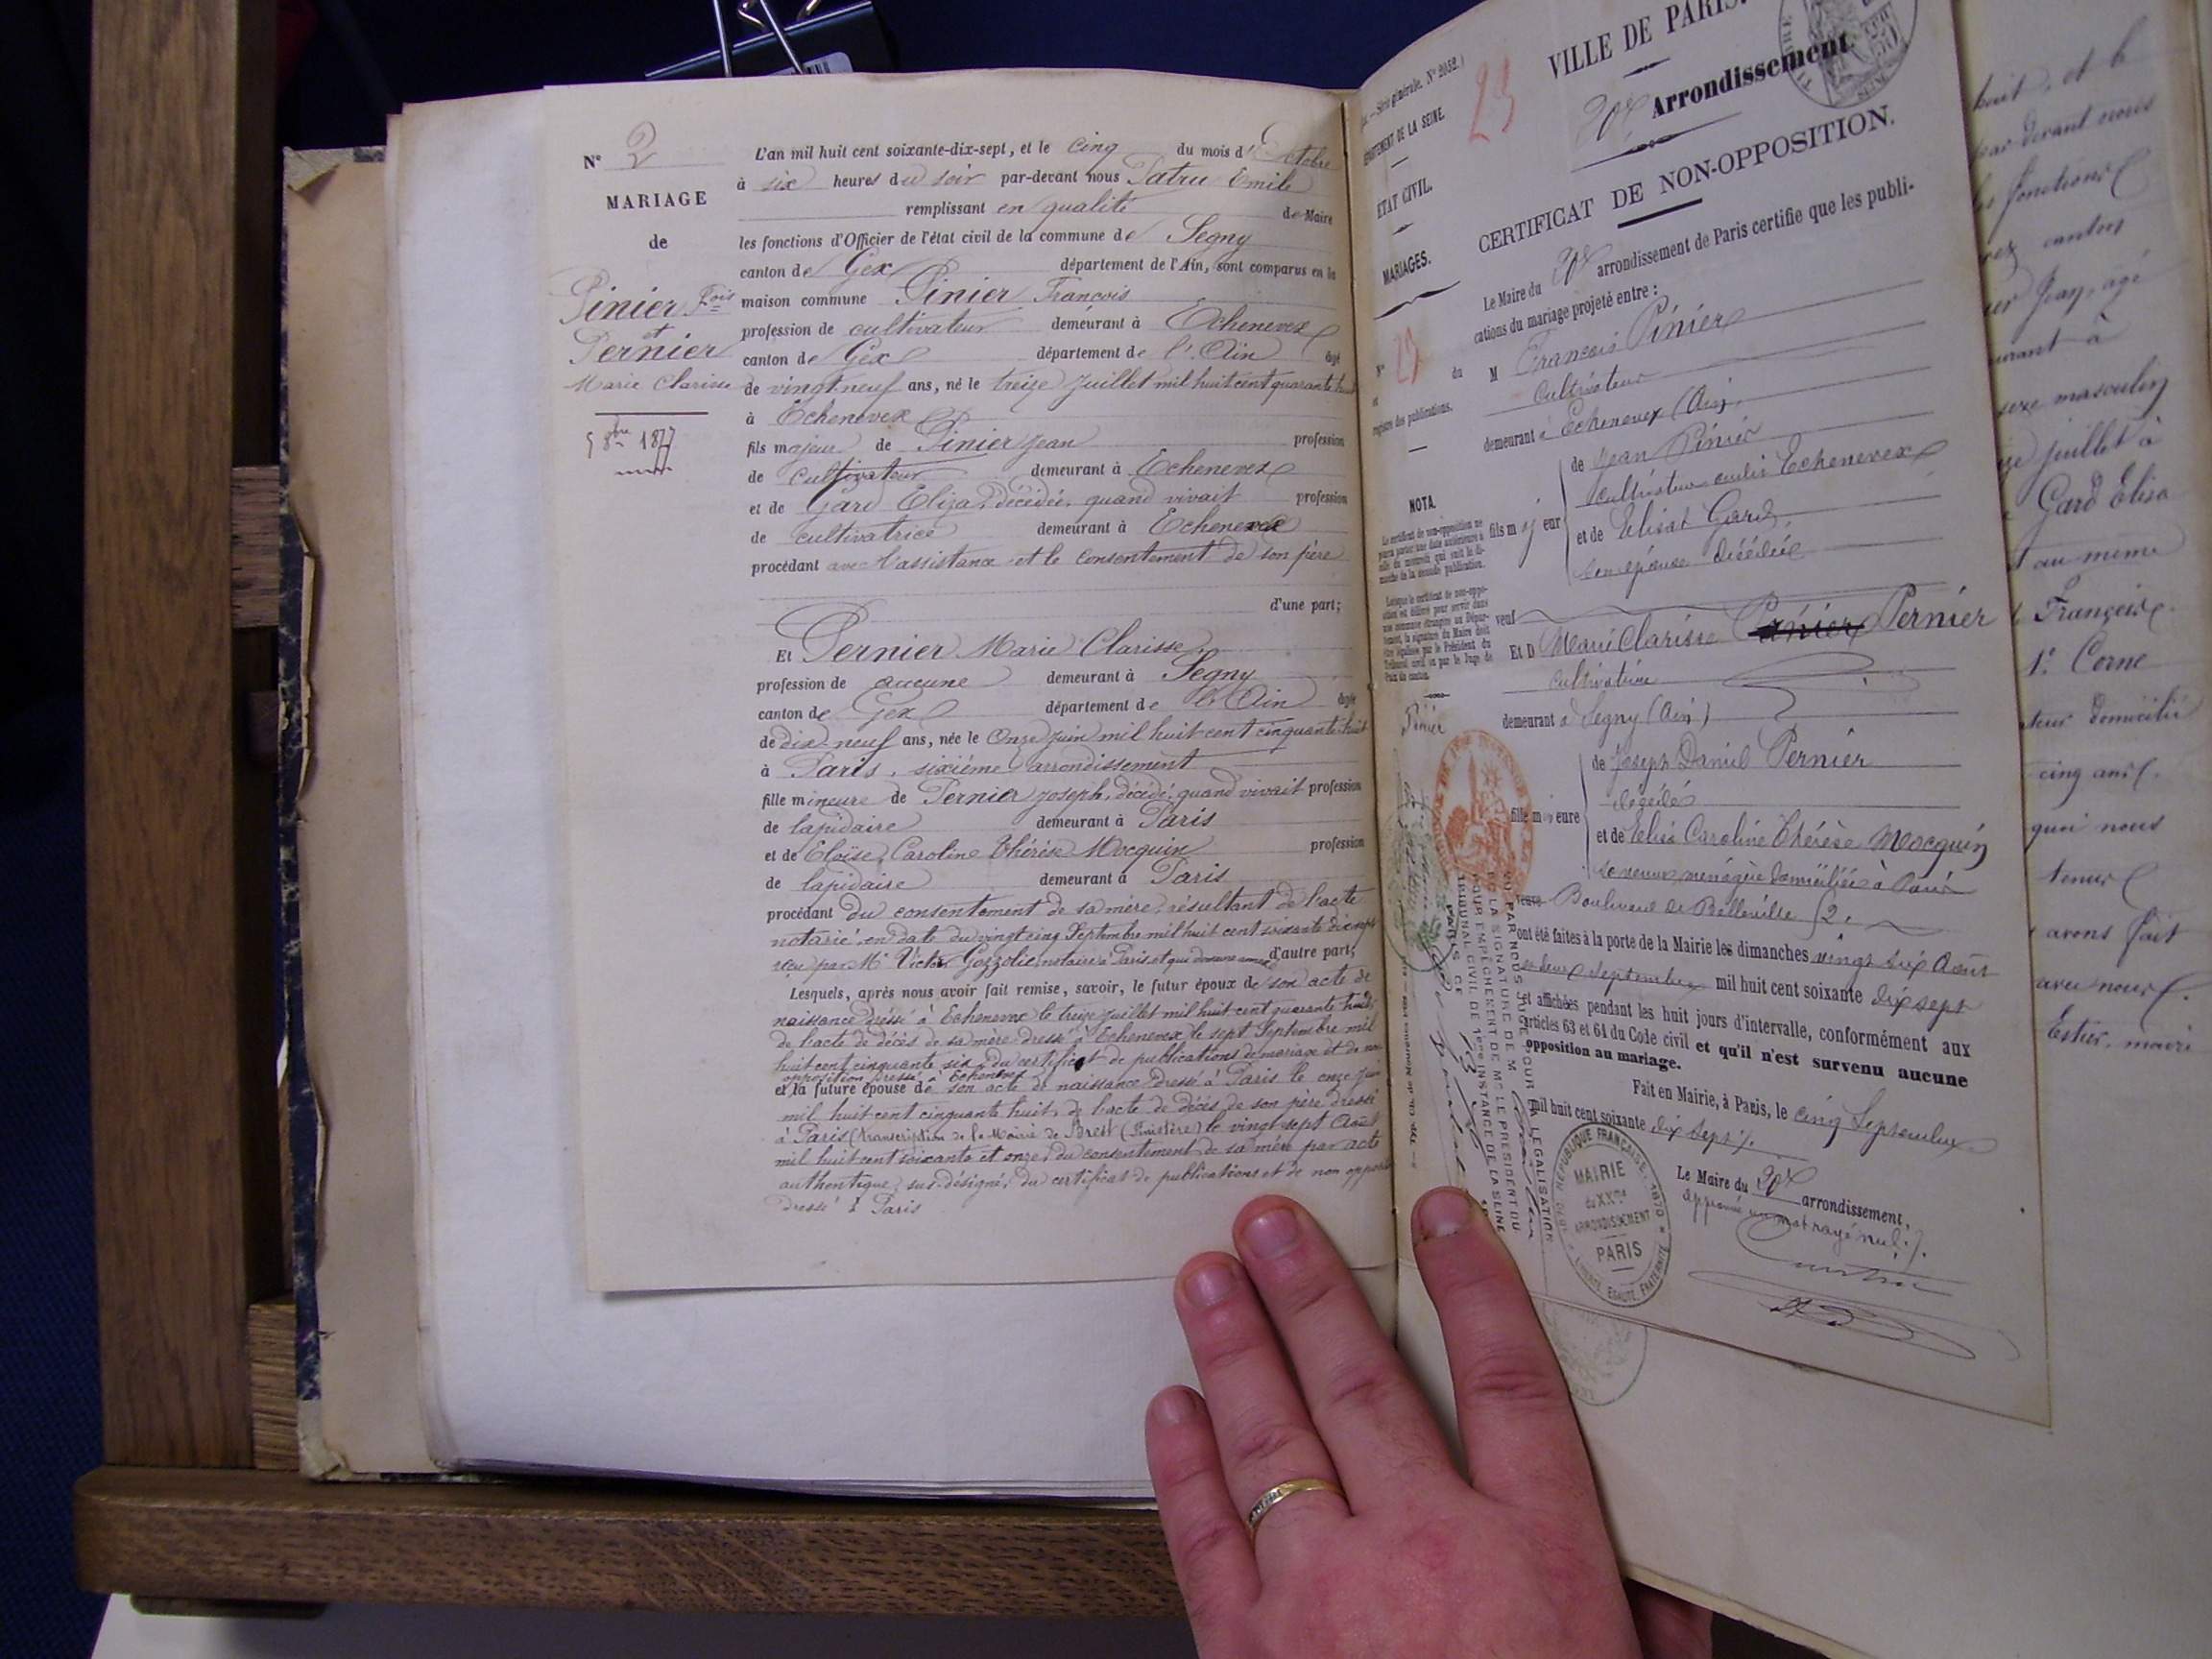 Nº 2
MARIAGE
de
Pinier Fois
et
Pernier
Marie Clarisse
5 8bre 1877
L'an mil huit cent soixante-dix-sept, et le cinq du mois d'Octobre
à six heures du soir par-devant nous Patru Emile
remplissant en qualité de Maire
les fonctions d'Officier de l'état civil de la commune de Segny
canton de Gex département de l'Ain, sont comparus en la
maison commune Pinier François
profession de cultivateur demeurant à Echenevex
canton de Gex département de l'Ain âgé
de vingt-neuf ans, né le treize Juillet mil huit cent quarante huit
à Echenevex
fils majeur de Pinier Jean profession
de cultivateur demeurant à Echenevex
et de Gard Eliza, décédée, quand vivait profession
de cultivatrice demeurant à Echenevex
procédant avec l'assistance et le consentement de son père
d'une part;
Et Pernier Marie Clarisse
profession de aucune demeurant à Segny
canton de Gex département de l'Ain âgée
de dix-neuf ans, née le Onze Juin mil huit cent cinquante-huit
à Paris, sixième arrondissement
fille mineure de Pernier Joseph, décédé, quand vivait profession
de lapidaire demeurant à Paris
et de Eloïse, Caroline Thérèse Mocquin profession
de lapidaire demeurant à Paris
procédant du consentement de sa mère, résultant de l'acte
notarié en date du vingt cinq Septembre mil huit cent soixante dix sept
reçu par Me Victor Gozzoli, notaire à Paris et qui d'autre part;
Lesquels, après nous avoir fait remise, savoir, le futur époux de son acte de
naissance dressé à Echenevex le treize Juillet mil huit cent quarante huit;
de l'acte de décès de sa mère dressé à Echenevex le sept Septembre mil
huit cent cinquante six, du certificat de publications de mariage et de non
opposition dressé à Echenevex
et la future épouse de son acte de naissance dressé à Paris le onze Juin
mil huit cent cinquante huit, de l'acte de décès de son père dressé
à Paris (transcription de la Mairie de Brest (Finistère) le vingt sept Août
mil huit cent soixante et onze, du consentement de sa mère par acte
authentique, sus-désigné, du certificat de publications et de non opposition
dressé à Paris
Série générale. Nº 2052.)
DÉPARTEMENT DE LA SEINE.
ÉTAT CIVIL.
MARIAGES.
Nº 29 du
registre des publications.
NOTA.
23
VILLE DE PARIS.
20e Arrondissement
CERTIFICAT DE NON-OPPOSITION.
Le Maire du 20e arrondissement de Paris certifie que les publi-
cations du mariage projeté entre :
M François Pinier
Cultivateur
demeurant à Echenevex (Ain)
fils majeur de Jean Pinier
cultivateur Echenevex
et de Elisat Gard,
son épouse décédée
veuf
Et D Marie Clarisse Pernier
cultivatrice
demeurant à Segny (Ain)
fille mineure de Joseph Daniel Pernier
décédé
et de Elisa Caroline Thérèse Mocquin
sa veuve ménagère domiciliée à Paris
Boulevard de Belleville 52.
ont été faites à la porte de la Mairie les dimanches vingt six Août
et deux septembre mil huit cent soixante dix sept
et affichées pendant les huit jours d'intervalle, conformément aux
articles 63 et 64 du Code civil et qu'il n'est survenu aucune
opposition au mariage.
Fait en Mairie, à Paris, le cinq Septembre
mil huit cent soixante dix sept.
Le Maire du 20e arrondissement,
approuvé un mot rayé nul.
RÉPUBLIQUE FRANÇAISE. 1870
MAIRIE
du XXme
ARRONDISSEMENT
PARIS
LIBERTÉ, ÉGALITÉ, FRATERNITÉ
VU PAR NOUS JUGE POUR LA LÉGALISATION
DE LA SIGNATURE DE M
POUR EMPÊCHEMENT DE Mr LE PRÉSIDENT DU
TRIBUNAL CIVIL DE 1ère INSTANCE DE LA SEINE
PARIS CE 13
huit, et le
par devant nous
les fonctions
canton
Jean, agé
demeurant à
sexe masculin
juillet à
Gard Elisa
au même
Françoise
1º Corne
domicilié
cinq ans
quoi nous
tenus
avons fait
avec nous
Estier, maire